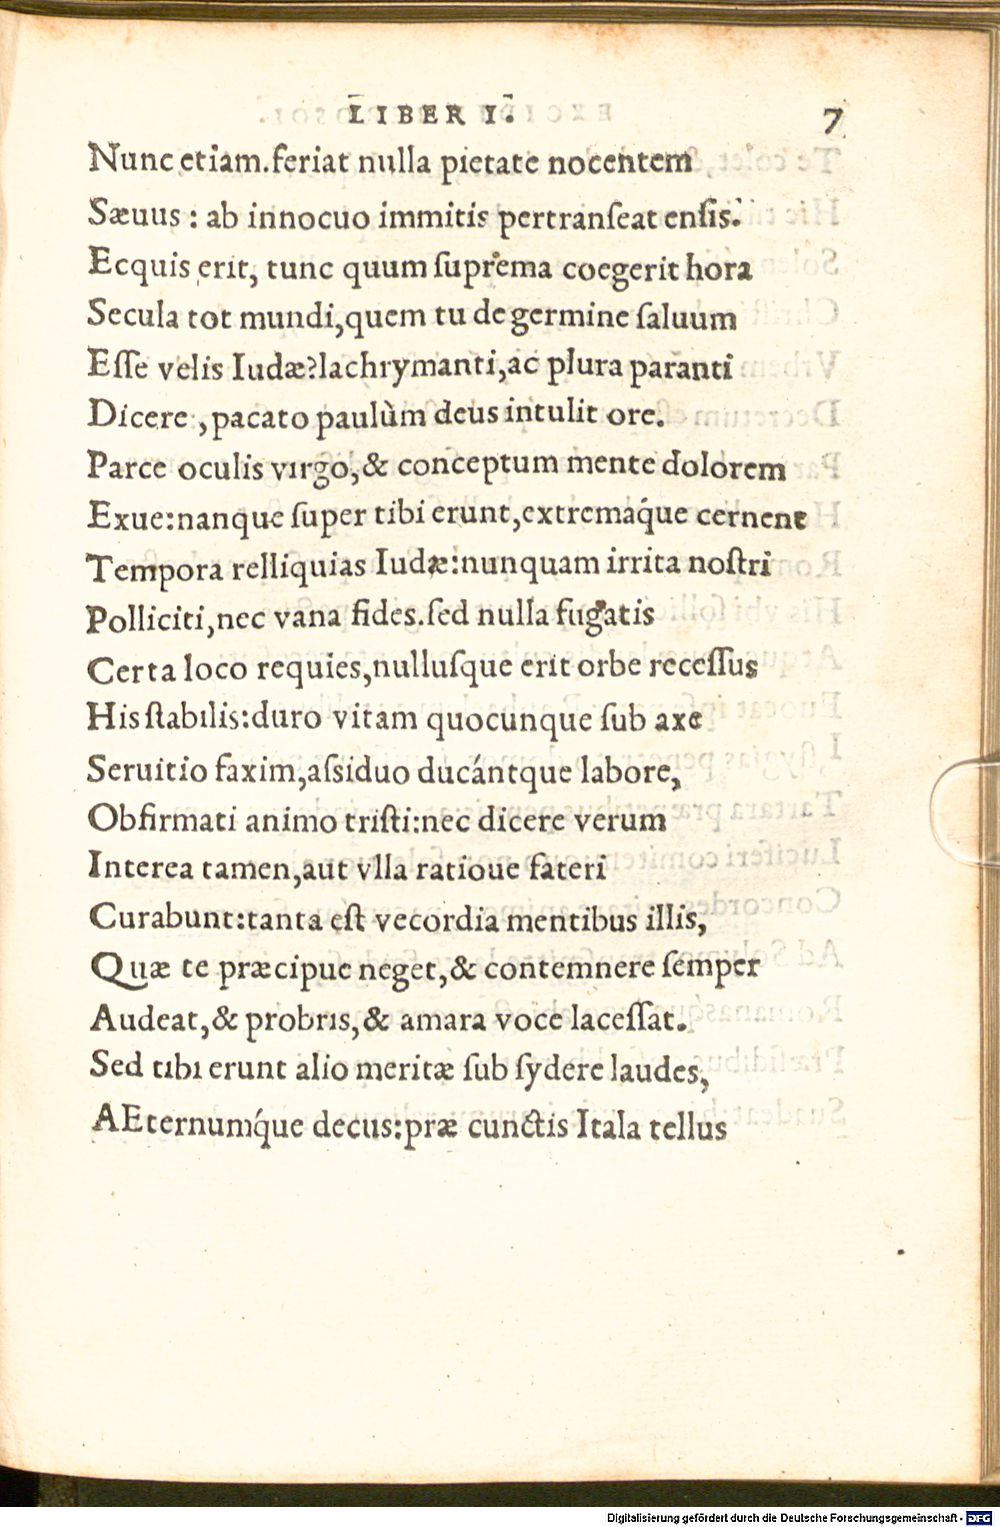 LIBER I. 7
Nunc etiam.feriat nulla pietate nocentem
Sæuus : ab innocuo immitis pertranſeat enſis.
Ecquis erit, tunc quum ſuprema coegerit hora
Secula tot mundi,quem tu de germine ſaluum
Eſſe velis Iudæ?lachrymanti,ac plura paranti
Dicere ,pacato paulùm deus intulit ore.
Parce oculis virgo,& conceptum mente dolorem
Exue:nanque ſuper tibi erunt,extremáque cernent
Tempora relliquias Iudæ:nunquam irrita noſtri
Polliciti,nec vana fides.ſed nulla fugatis
Certa loco requies,nulluſque erit orbe receſſus
His ſtabilis:duro vitam quocunque ſub axe
Seruitio faxim,aſsiduo ducántque labore,
Obfirmati animo triſti:nec dicere verum
Interea tamen,aut vlla ratioue fateri
Curabunt:tanta eſt vecordia mentibus illis,
Quæ te præcipue neget,& contemnere ſemper
Audeat,& probris,& amara voce laceſſat.
Sed tibi erunt alio meritæ ſub ſydere laudes,
AEternumq́ue decus:præ cunctis Itala tellus
Digitalisierung gefördert durch die Deutsche Forschungsgemeinschaft - DFG